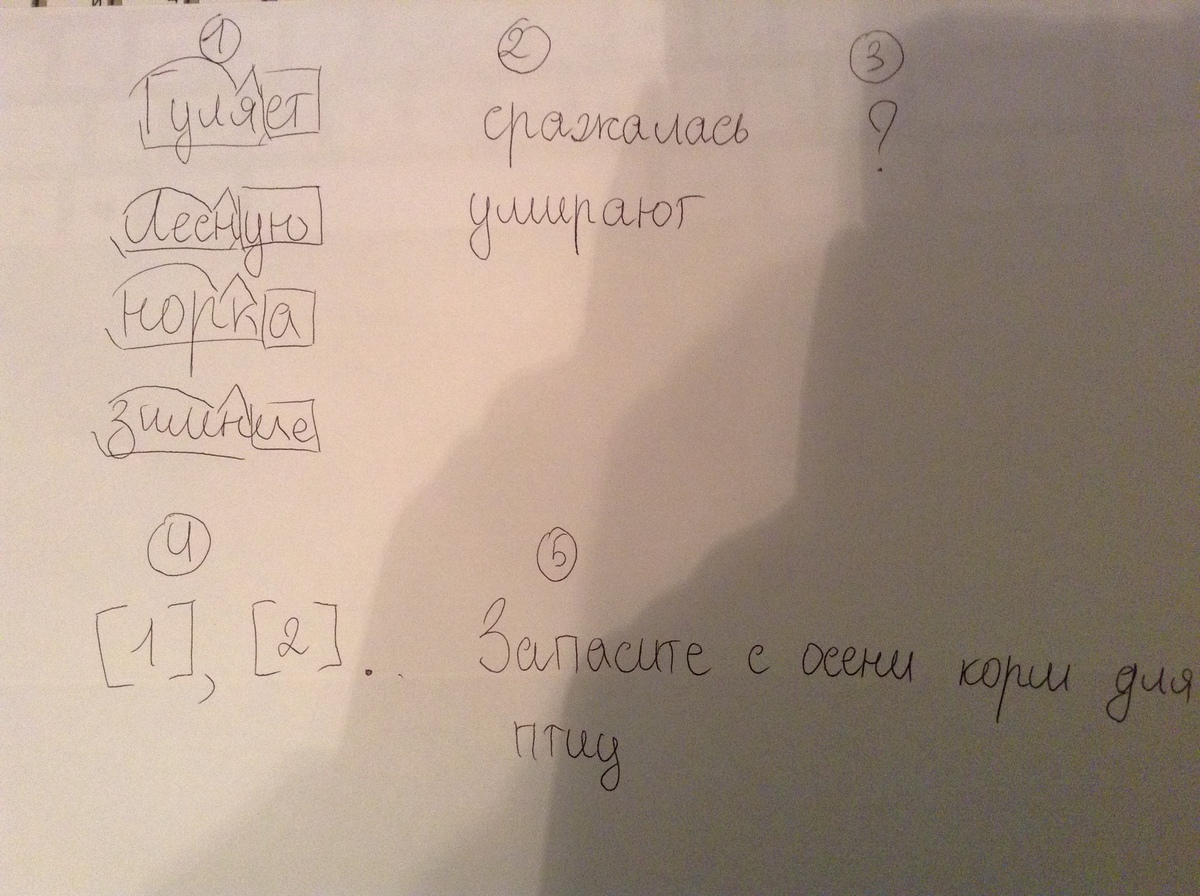 1 2 3
Гуляет сражалась ?
Лесную умирают
норка
зимние
4 5
[1], [2]. Запасите с осени корм для
птиц